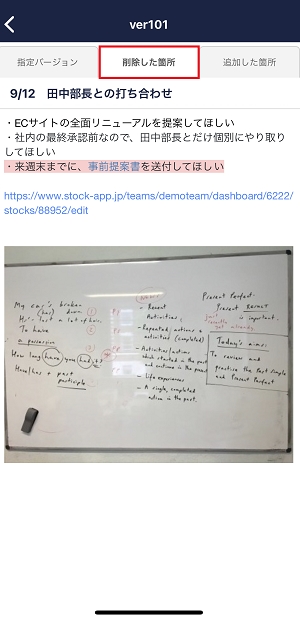 ver101
指定バージョン
削除した箇所
追加した箇所
9/12 田中部長との打ち合わせ
・ECサイトの全面リニューアルを提案してほしい
・社内の最終承認前なので、田中部長とだけ個別にやり取り
してほしい
・来週末までに、事前提案書を送付してほしい
https://www.stock-app.jp/teams/demoteam/dashboard/6222/
stocks/88952/edit
My car's broken
down.
(has)
a lot of
To have
a possession
How long have you had it?
Have/has + past
participle
- Recent
Activities.
- Repeated actions +
activities (completed)
- Activities/actions
which started in the past
and continue in the present
- Life experiences
- A single, completed
action in the past.
Present Perfect.
Present RESULT
is important.
just
recently
Today's aims:
To review and
practice the Past Simple
and Present Perfect